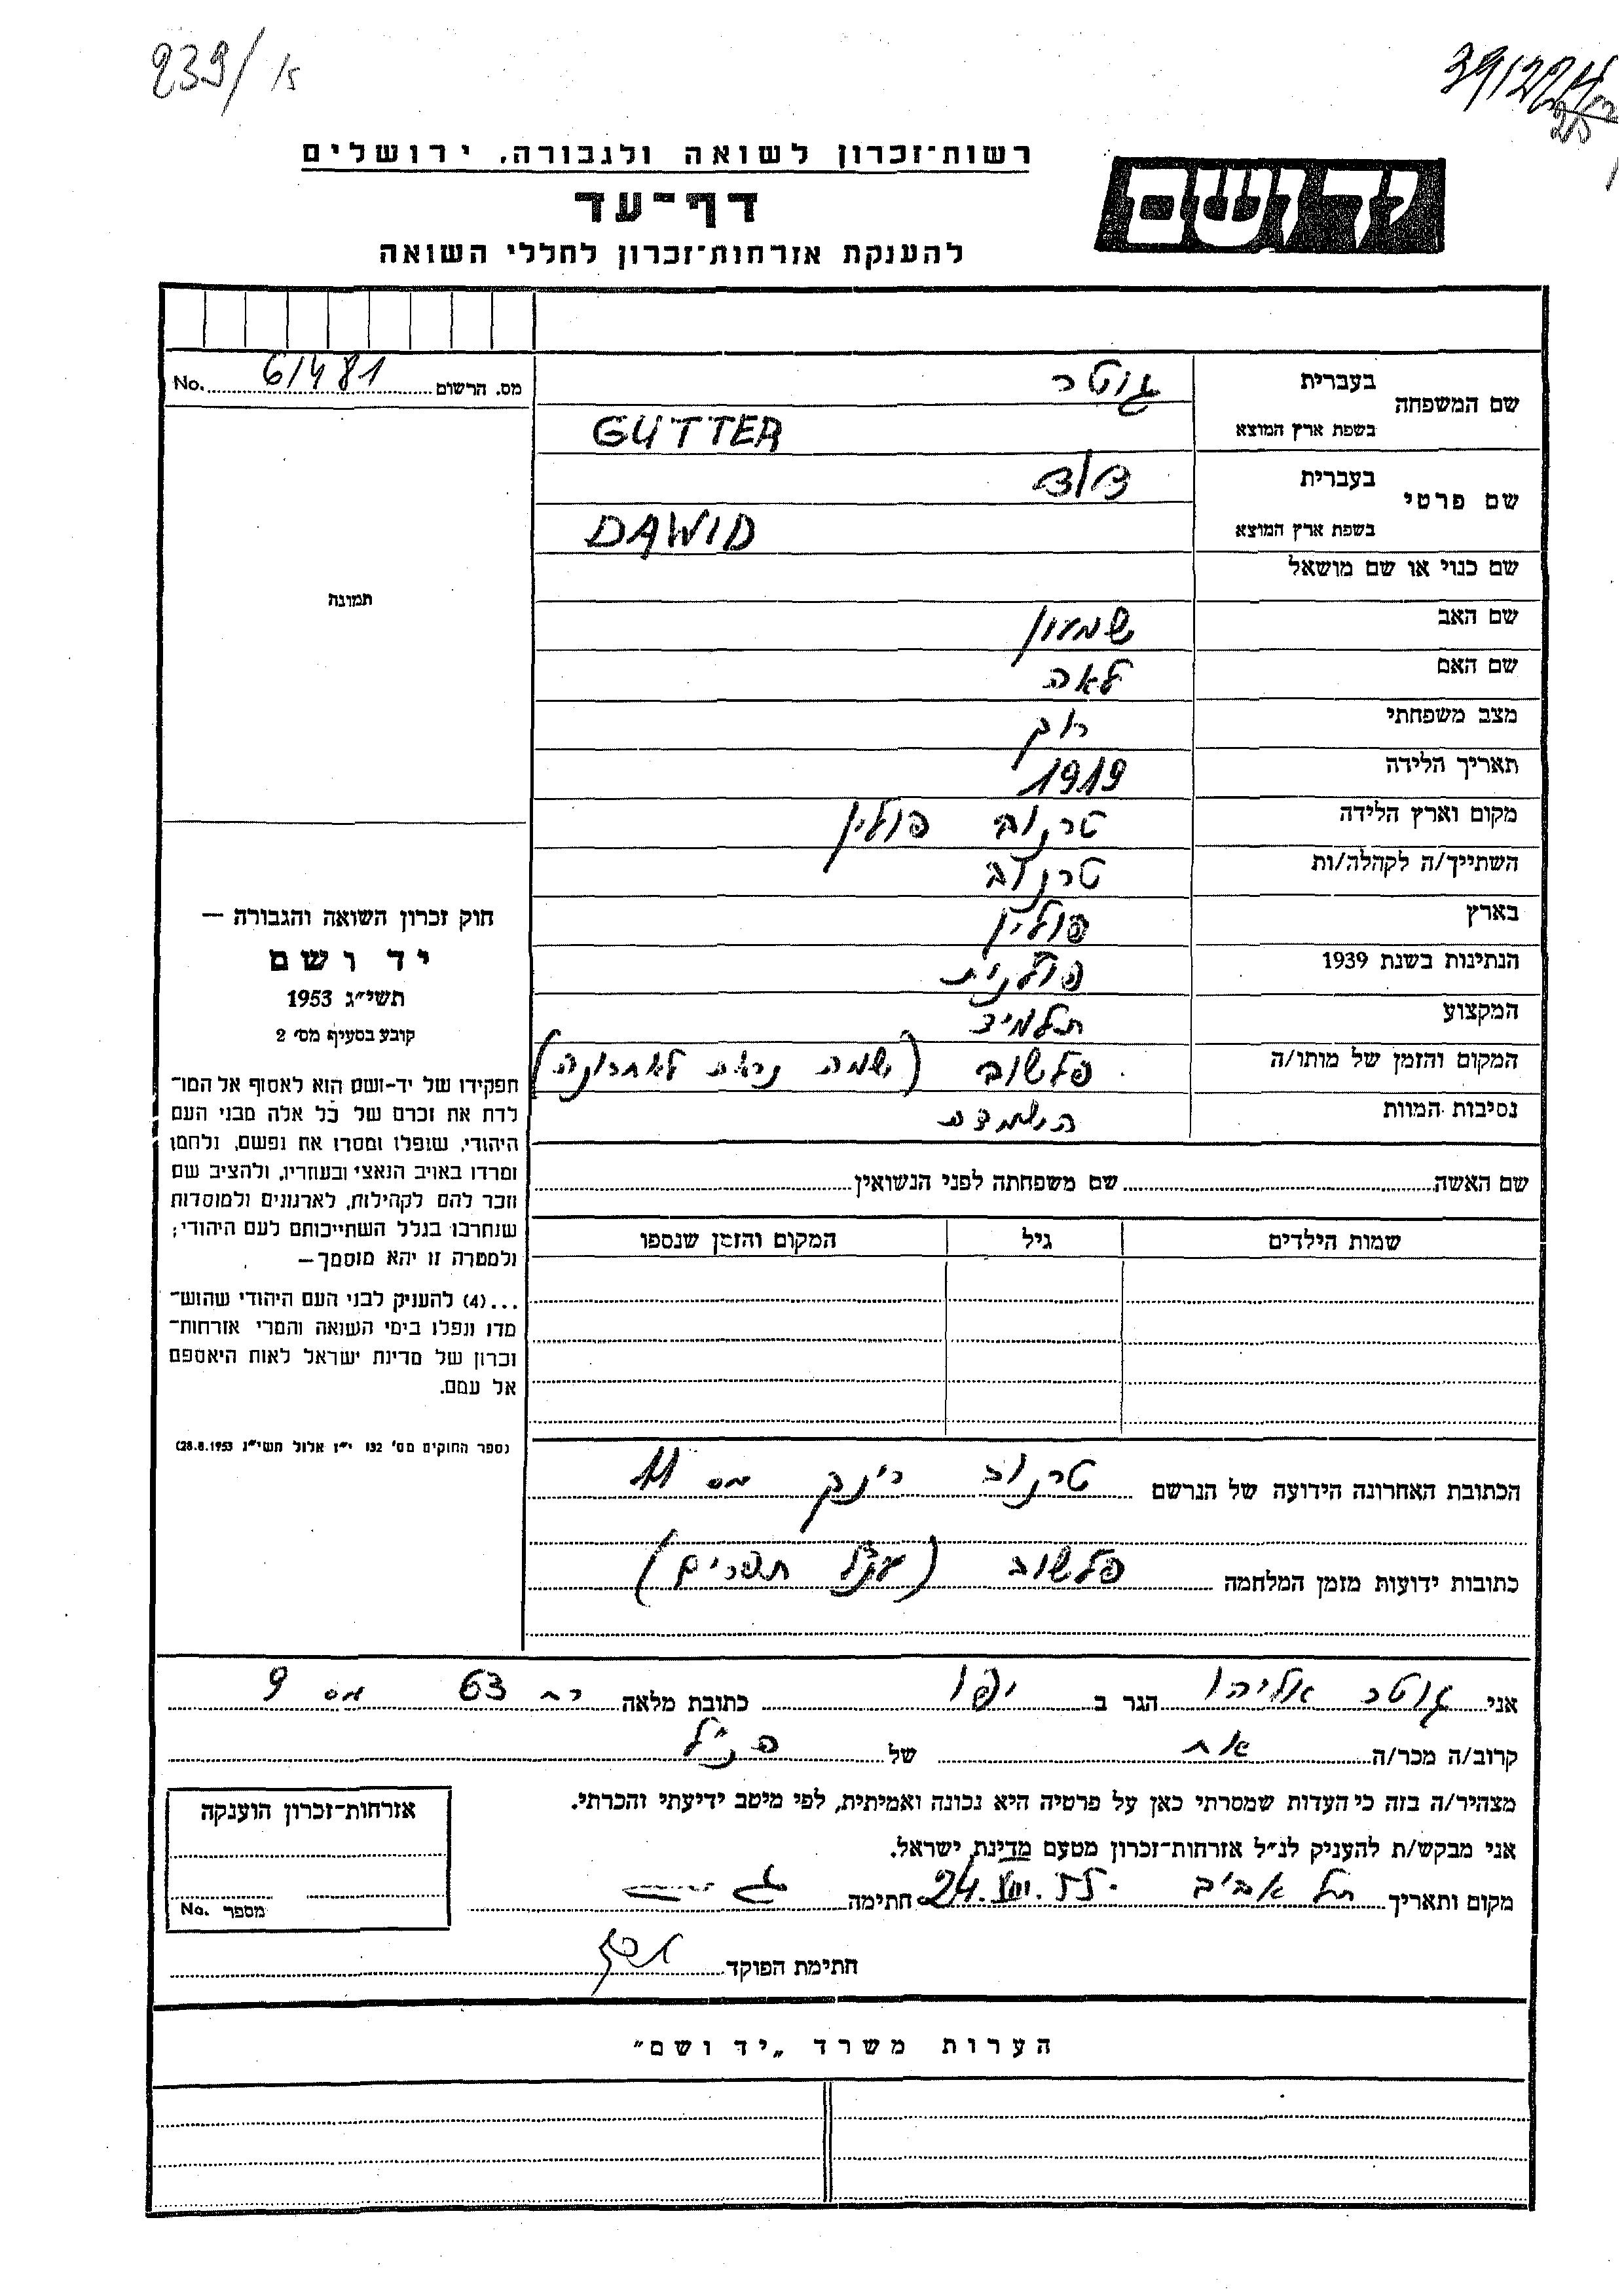 239/15
רשות־זכרון לשואה ולגבורה, ירושלים
דף־עד
להענקת אזרחות־זכרון לחללי השואה
יד ושם
מס. הרשום 61481 No.
שם המשפחה
בעברית גוטר
בשפת ארץ המוצא GUTTER
שם פרטי
בעברית דוד
בשפת ארץ המוצא DAWID
שם כנוי או שם מושאל
שם האב שמעון
שם האם לאה
מצב משפחתי רוק
תאריך הלידה 1919
מקום וארץ הלידה טרנוב פולין
השתייך/ה לקהלה/ות טרנוב
בארץ פולין
הנתינות בשנת 1939 פולנית
המקצוע תלמיד
המקום והזמן של מותו/ה פלשוב (שמה נראה לאחרונה)
נסיבות המוות השמדה
תמונה
חוק זכרון השואה והגבורה —
יד ושם
תשי״ג 1953
קובע בסעיף מס׳ 2
תפקידו של יד-ושם הוא לאסוף אל המו־
לדת את זכרם של כל אלה מבני העם
היהודי, שנפלו ומסרו את נפשם, נלחמו
ומרדו באויב הנאצי ובעוזריו, ולהציב שם
וזכר להם לקהילות, לארגונים ולמוסדות
שנחרבו בגלל השתייכותם לעם היהודי;
ולמטרה זו יהא מוסמך—
...(4) להעניק לבני העם היהודי שהוש־
מדו ונפלו בימי השואה והמרי אזרחות־
זכרון של מדינת ישראל לאות היאספם
אל עמם.
(ספר החוקים מס׳ 132 י״ז אלול תשי״ג 28.8.1953)
שם האשה שם משפחתה לפני הנשואין
שמות הילדים גיל המקום והזמן שנספו
הכתובת האחרונה הידועה של הנרשם טרנוב רינק מס 11
כתובות ידועות מזמן המלחמה פלשוב (אצל תפרים)
אני גוטר אליהו הגר ב יפו כתובת מלאה רח 63 מס 9
קרוב/ה מכר/ה אח של הנ״ל
מצהיר/ה בזה כי העדות שמסרתי כאן על פרטיה היא נכונה ואמיתית, לפי מיטב ידיעתי והכרתי.
אני מבקש/ת להעניק לנ״ל אזרחות־זכרון מטעם מדינת ישראל.
מקום ותאריך תל אביב 24.VIII.55 חתימה
אזרחות־זכרון הוענקה
מספר No.
חתימת הפוקד
הערות משרד „יד ושם״